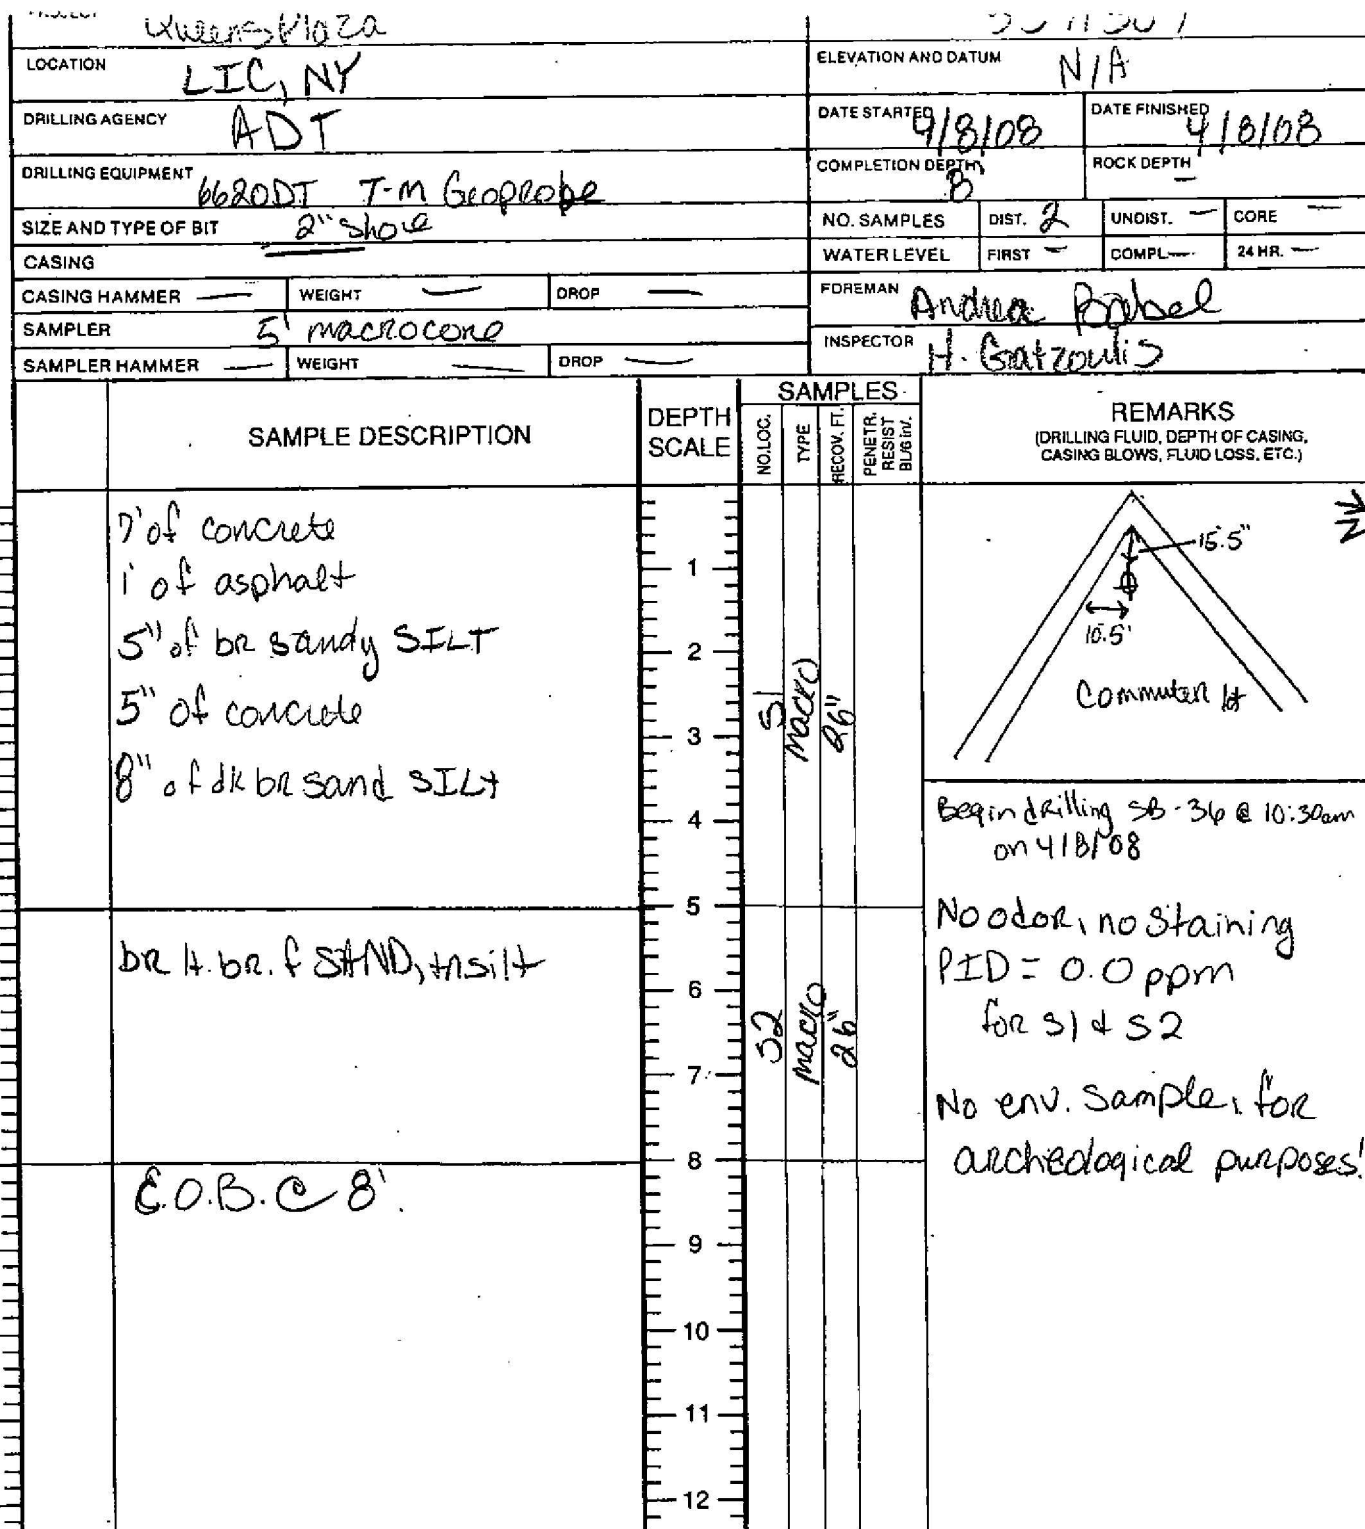 Queens Plaza
LOCATION LIC, NY
ELEVATION AND DATUM N/A
DRILLING AGENCY ADT
DATE STARTED 4/8/08 DATE FINISHED 4/8/08
DRILLING EQUIPMENT 6620DT T-M Geoprobe
COMPLETION DEPTH 8 ROCK DEPTH —
SIZE AND TYPE OF BIT 2" shoe
NO. SAMPLES DIST. 2 UNDIST. — CORE —
CASING
WATER LEVEL FIRST — COMPL. — 24 HR. —
CASING HAMMER — WEIGHT — DROP —
FOREMAN Andrea
SAMPLER 5' macrocore
INSPECTOR H. Gatzoulis
SAMPLER HAMMER — WEIGHT — DROP —
SAMPLE DESCRIPTION
DEPTH SCALE
SAMPLES
NO.LOC. TYPE RECOV. FT. PENETR. RESIST BL/6 in.
REMARKS
(DRILLING FLUID, DEPTH OF CASING,
CASING BLOWS, FLUID LOSS, ETC.)
7' of concrete
1' of asphalt
5" of br sandy SILT
5" of concrete
8" of dk br sand SILt
br lt. br. f SAND, tr silt
E.O.B. @ 8'.
1
2
3
4
5
6
7
8
9
10
11
12
S1 macro 26"
S2 macro 26"
N
15.5"
10.5'
Commuter lot
Begin drilling SB-36 @ 10:30am
on 4/8/08
No odor, no staining
PID = 0.0 ppm
for S1 & S2
No env. sample, for
archeological purposes!